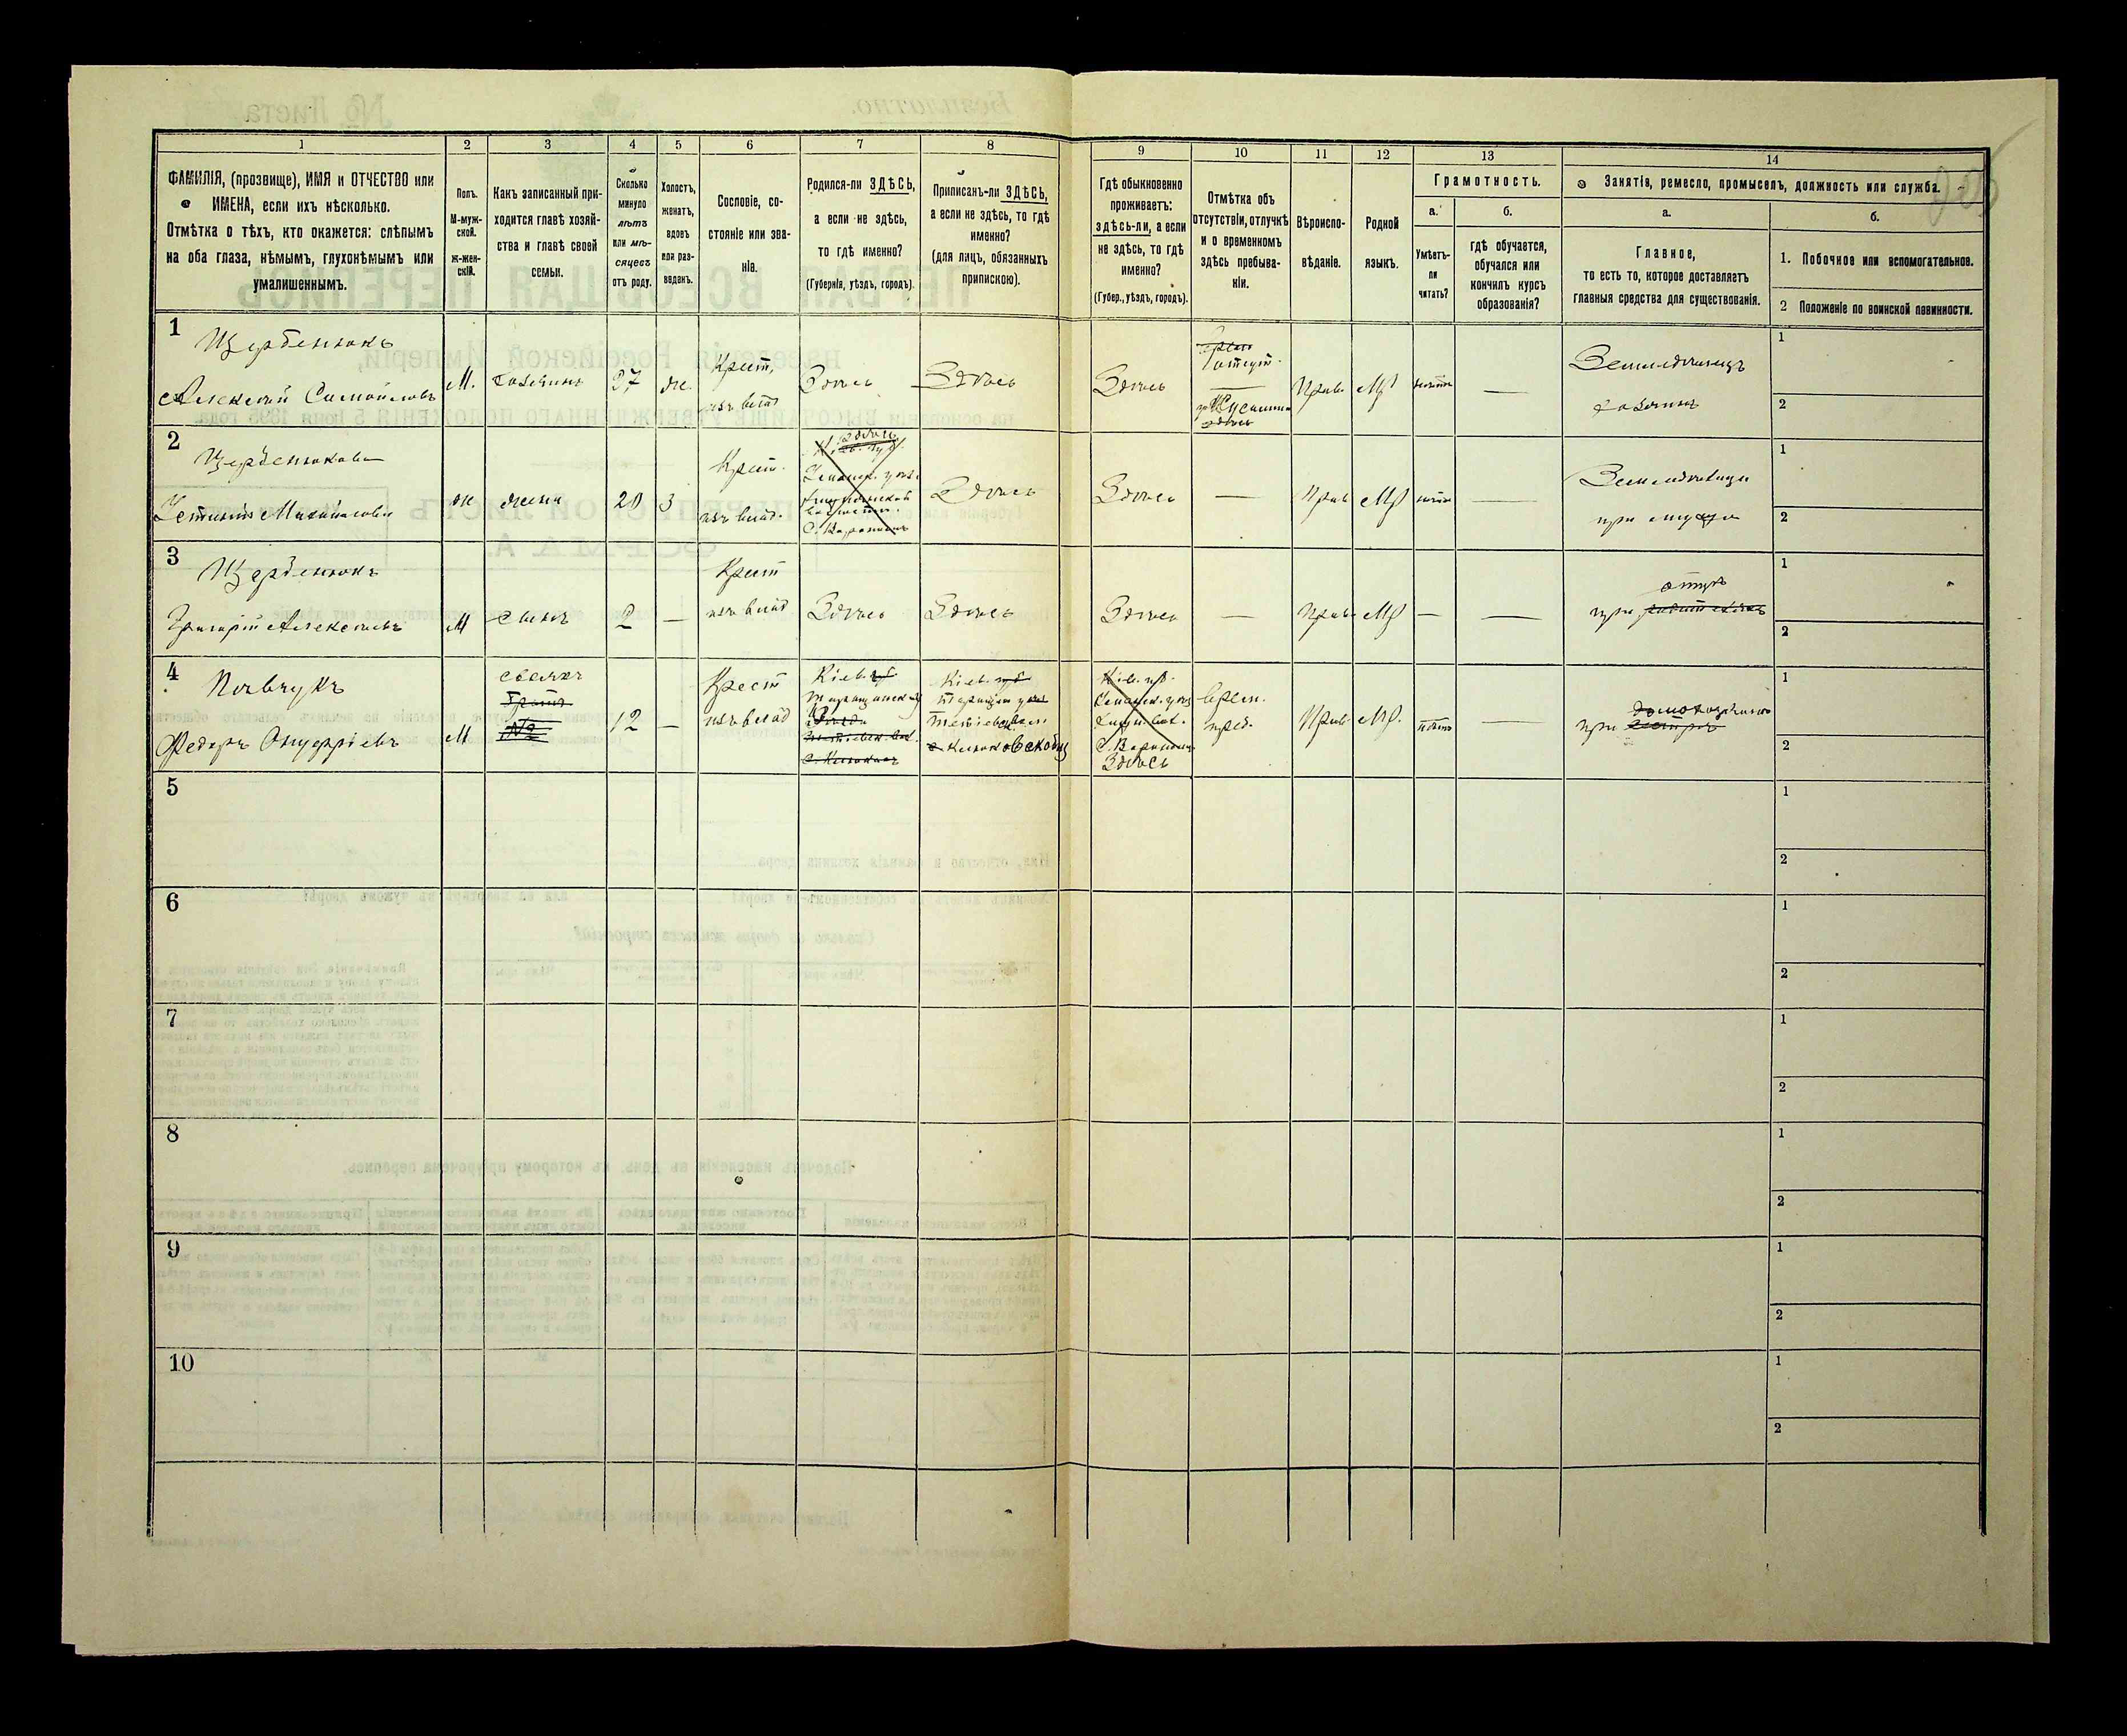 1 2 3 4 5 6 7 8 9 10 11 12 13 14
ФАМИЛІЯ, (прозвище), ИМЯ и ОТЧЕСТВО или
ИМЕНА, если ихъ нѣсколько.
Отмѣтка о тѣхъ, кто окажется: слѣпымъ
на оба глаза, нѣмымъ, глухонѣмымъ или
умалишеннымъ.
Полъ.
М-муж-
ской.
Ж-жен-
скій.
Какъ записанный при-
ходится главѣ хозяй-
ства и главѣ своей
семьи.
Сколько
минуло
лѣтъ
или мѣ-
сяцевъ
отъ роду.
Холостъ,
женатъ,
вдовъ
или раз-
веденъ.
Сословіе, со-
стояніе или зва-
ніе.
Родился-ли ЗДѢСЬ,
а если не здѣсь,
то гдѣ именно?
(Губернія, уѣздъ, городъ).
Приписанъ-ли ЗДѢСЬ,
а если не здѣсь, то гдѣ
именно?
(для лицъ, обязанныхъ
припискою).
Гдѣ обыкновенно
проживаетъ:
здѣсь-ли, а если
не здѣсь, то гдѣ
именно?
(Губер., уѣздъ, городъ).
Отмѣтка объ
отсутствіи, отлучкѣ
и о временномъ
здѣсь пребыва-
ніи.
Вѣроиспо-
вѣданіе.
Родной
языкъ.
Грамотность.
а.
Умѣетъ-
ли
читать?
б.
гдѣ обучается,
обучался или
кончилъ курсъ
образованія?
Занятіе, ремесло, промыселъ, должность или служба.
а.
Главное,
то есть то, которое доставляетъ
главныя средства для существованія.
б.
1. Побочное или вспомогательное.
2 Положеніе по воинской повинности.
1
Щербенюкъ
Алексѣй Самойловъ
М.
хозяинъ
27
ж.
Крест.
изъ влад
Здѣсь
Здѣсь
Здѣсь
отсут.
Прав.
МР
нѣтъ
—
Земледѣлецъ
хозяинъ
1
2
2
Щербенюкова
Устинія Михайлова
ж
жена
20
З
Крест.
изъ влад.
здѣсь
Здѣсь
Здѣсь
—
Прав
МР
нѣтъ
—
Земледѣлица
при мужѣ
1
2
3
Щербенюкъ
Григорій Алексѣевъ
М
сынъ
2
—
Крест
изъ влад
Здѣсь
Здѣсь
Здѣсь
—
Прав.
МР
—
—
отцѣ
при
1
2
4
Федоръ Онуфріевъ
М
братъ
№2
12
—
Крест
изъ влад
Кіев. губ
Кіев. губ
Кіев. губ.
Здѣсь
врем.
преб.
Прав.
МР.
нѣтъ
—
при
1
2
5
1
2
6
1
2
7
1
2
8
1
2
9
1
2
10
1
2